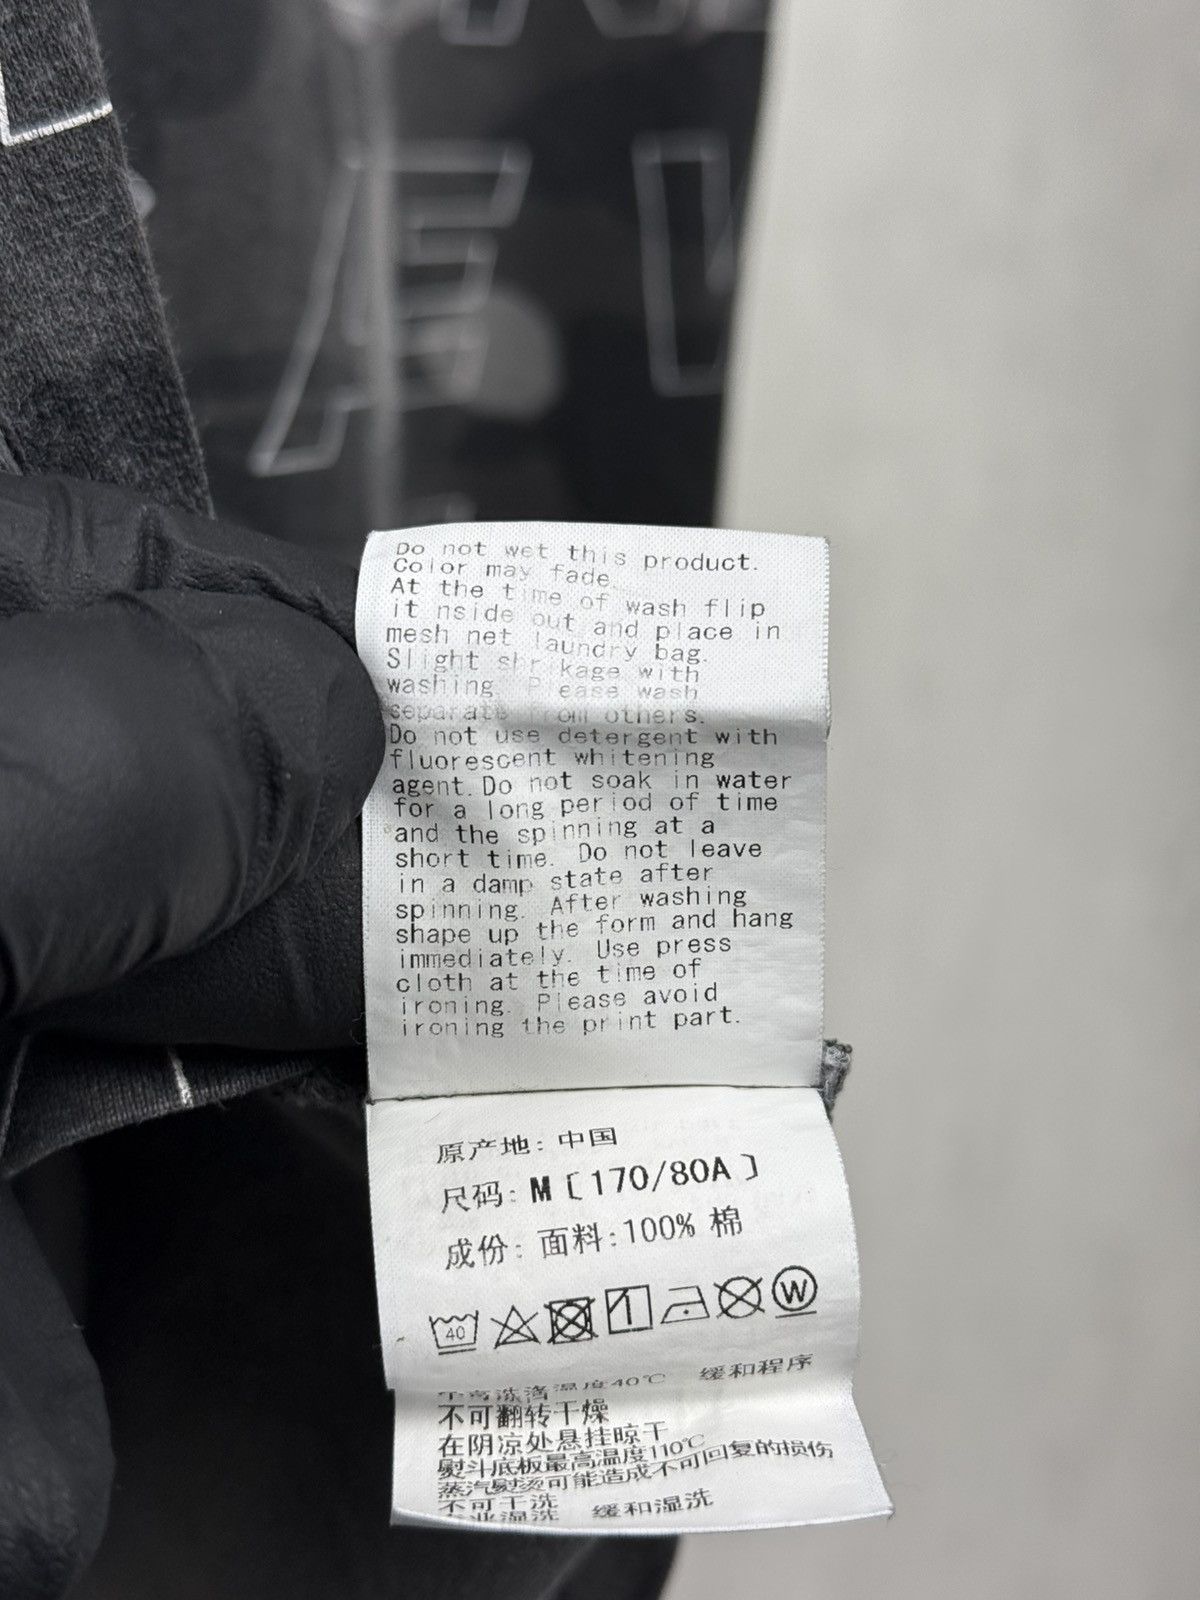 E
Do not wet this product.
Color may fade.
At the time of wash flip
it nside out and place in
mesh net laundry bag.
Slight shr kage with
washing. Please wash
separate from others.
Do not use detergent with
fluorescent whitening
agent.Do not soak in water
for a long period of time
and the spinning at a
short time. Do not leave
in a damp state after
spinning. After washing
shape up the form and hang
immediately. Use press
cloth at the time of
ironing. Please avoid
ironing the print part.
原产地: 中国
尺码: M〔170/80A〕
成份: 面料:100% 棉
40 W
洗涤温度40℃ 缓和程序
不可翻转干燥
在阴凉处悬挂晾干
熨斗底板最高温度110℃
蒸汽熨烫可能造成不可回复的损伤
不可干洗
专业湿洗 缓和湿洗